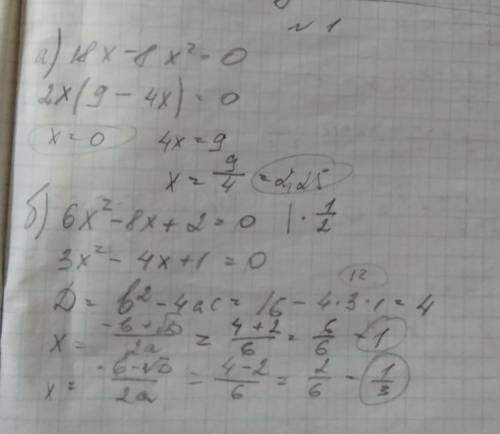 № 1
а) 18x - 8x² = 0
2x(9 - 4x) = 0
x = 0 4x = 9
x = 9/4 = 2,25
б) 6x² - 8x + 2 = 0 | · 1/2
3x² - 4x + 1 = 0
12
D = b² - 4ac = 16 - 4·3·1 = 4
x = (-b + √D)/2a = (4+2)/6 = 6/6 - 1
x = (-b - √D)/2a = (4-2)/6 = 2/6 - 1/3